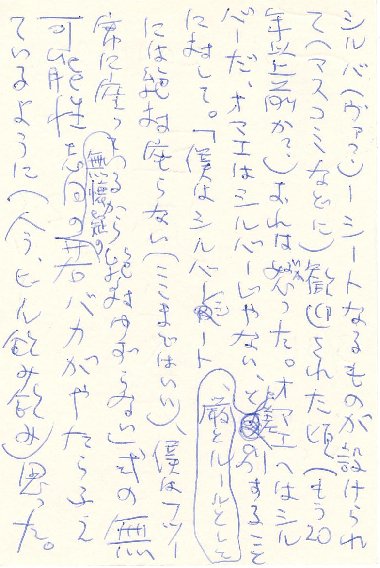 シルバ(ヴァ)ーシートなるものが設けられ
て(マスコミなどに)歓迎された頃(もう20
年以上前か?)おれは怒った。オマエはシル
バーだ、オマエはシルバーじゃない、と差別すること
に対して。「僕はシルバーシート
厳とルールとして
には絶対座らない(ここまではいい)、僕はフツー
席に座ってるから絶対ゆずらない」式の無
無意識の
可能性志向の バカがやたらふえ
ているように(今、ビール飲み飲み)思った。